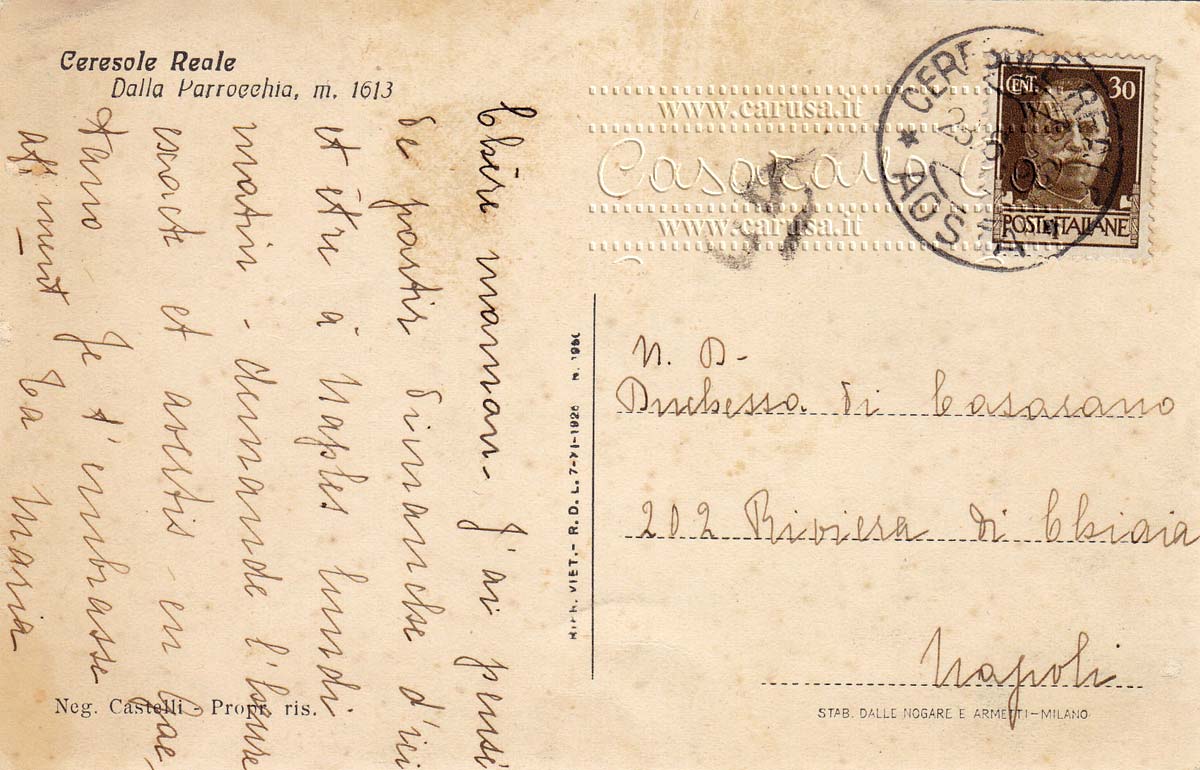 Ceresole Reale
Dalla Parrocchia, m. 1613
Chère maman. J'ai pensé
de partir dimanche d'ici
et être à Naples lundi
matin - demande l'heure
exacte et avertis - en
Je t'embrasse
aff.ment ta Maria
Neg. Castelli - Propr. ris.
VIET. - R. D. L. 7-XI-1926 N.
www.carusa.it
Casarano Ca
www.carusa.it
CERESOLE REALE
* AOSTA
CENT. 30
POSTE ITALIANE
N. D-
Duchessa di Casarano
202 Riviera di Chiaia
Napoli
STAB. DALLE NOGARE E ARMETTI-MILANO